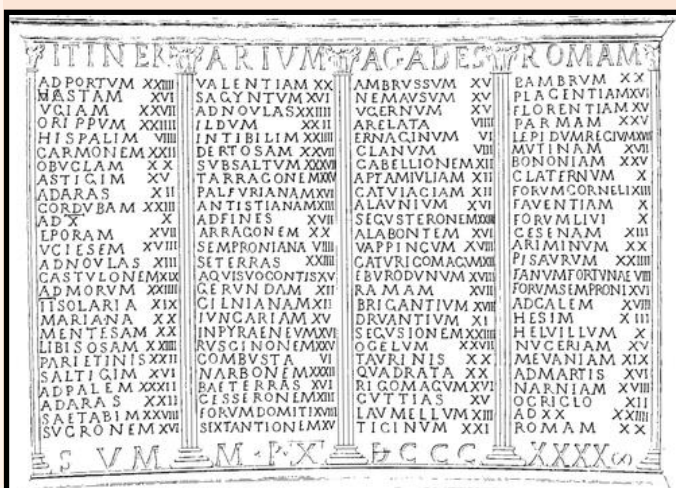 ITINERARIVM AGADES ROMAM
ADPORTVM XXIIII
HASTAM XVI
VGIAM XXVII
ORIPPVM XXIIII
HISPALIM VIIII
CARMONEM XXII
OBVCLAM XX
ASTIGIM XV
ADARAS XII
CORDVBAM XXIII
AD X X
EPORAM XVII
VCIESEM XVIII
ADNOVLAS XIII
CASTVLONEM XIX
ADMORVM XXIIII
II SOLARIA XIX
MARIANA XX
MENTESAM XX
LIBISOSAM XXIIII
PARIETINIS XXII
SALTIGIM XVI
ADPALEM XXXII
ADARAS XXII
SAETABIM XXVIII
SVCRONEM XVI
VALENTIAM XX
SAGYNTVM XVI
ADNOVLAS XXIIII
ILDVM XXII
INTIBILIM XXIIII
DERTOSAM XXVII
SVBSALTVM XXXVII
TARRAGONEM XXV
PALFVRIANAM XVI
ANTISTIANAM XIII
ADFINES XVII
ARRAGONEM XX
SEMPRONIANA VIIII
SETERRAS XXIIII
AQVISVOCONTIS XV
GERVNDAM XII
CILNIANAM XII
IVNCARIAM XV
INPYRAENEVM XVI
RVSCINONEM XXV
COMBVSTA VI
NARBONEM XXXII
BAETERRAS XVI
CESSERONEM XII
FORVMDOMITI XVIII
SEXTANTIONEM XV
AMBRVSSVM XV
NEMAVSVM XV
VGERNVM XV
ARELATA VIIII
ERNAGINVM VI
GLANVM VIII
CABELLIONEM XII
APTAMIVLIAM XII
CATVIACIAM XII
ALAVNIVM XVI
SEGVSTERONEM XXIIII
ALABONTEM XVI
VAPPINCVM XVIII
CATVRIGOMAGVM XII
EBVRODVNVM XVIII
RAMAM XVII
BRIGANTIVM XVIII
DRVANTIVM XI
SEGVSIONEM XXIIII
OCELVM XXVII
TAVRINIS XX
QVADRATA XX
RIGOMAGVM XVI
CVTTIAS XV
LAVMELLVM XIII
TICINVM XXI
PAMBRVM XX
PLACENTIAM XVI
FLORENTIAM XV
PARMAM XXV
LEPIDVMREGIVM XVII
MVTINAM XVII
BONONIAM XXV
CLATERNVM X
FORVMCORNELI XIII
FAVENTIAM X
FORVMLIVI X
CESENAM XIII
ARIMINVM XX
PISAVRVM XXIIII
FANVMFORTVNAE VIII
FORVMSEMPRONI XVI
ADCALEM XVIII
HESIM XIII
HELVILLVM X
NVCERIAM XV
MEVANIAM XIX
ADMARTIS XVI
NARNIAM XVIII
OCRICLO XII
ADXX XXIIII
ROMAM XX
SVM M·P·XD CCC XXXX